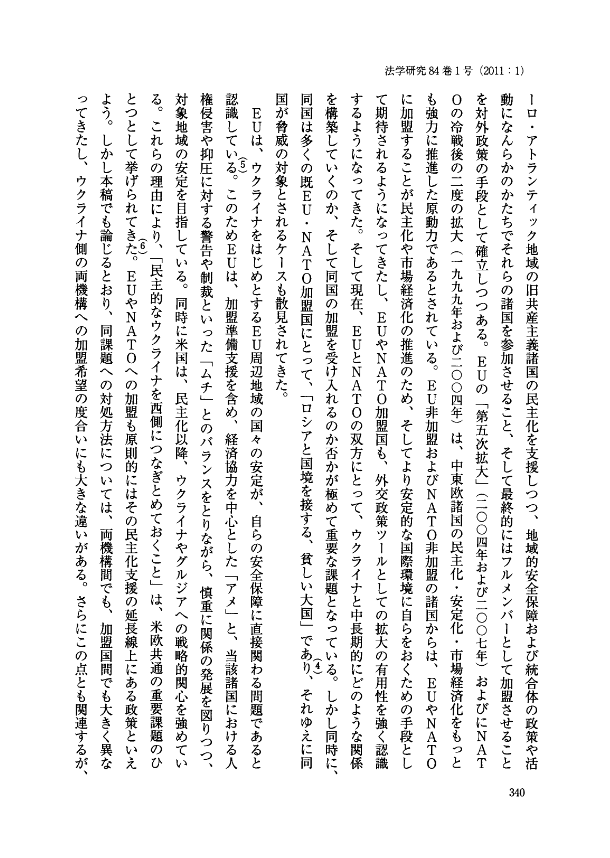 法学研究84巻1号（2011：1）
ーロ・アトランティック地域の旧共産主義諸国の民主化を支援しつつ、地域的安全保障および統合体の政策や活
動になんらかのかたちでそれらの諸国を参加させること、そして最終的にはフルメンバーとして加盟させること
を対外政策の手段として確立しつつある。ＥＵの「第五次拡大」（二〇〇四年および二〇〇七年）およびにＮＡＴ
Ｏの冷戦後の二度の拡大（一九九九年および二〇〇四年）は、中東欧諸国の民主化・安定化・市場経済化をもっと
も強力に推進した原動力であるとされている。ＥＵ非加盟およびＮＡＴＯ非加盟の諸国からは、ＥＵやＮＡＴＯ
に加盟することが民主化や市場経済化の推進のため、そしてより安定的な国際環境に自らをおくための手段とし
て期待されるようになってきたし、ＥＵやＮＡＴＯ加盟国も、外交政策ツールとしての拡大の有用性を強く認識
するようになってきた。そして現在、ＥＵとＮＡＴＯの双方にとって、ウクライナと中長期的にどのような関係
を構築していくのか、そして同国の加盟を受け入れるのか否かが極めて重要な課題となっている。しかし同時に、
同国は多くの既ＥＵ・ＮＡＴＯ加盟国にとって、「ロシアと国境を接する、貧しい大国」であり（４）、それゆえに同
国が脅威の対象とされるケースも散見されてきた。
ＥＵは、ウクライナをはじめとするＥＵ周辺地域の国々の安定が、自らの安全保障に直接関わる問題であると
認識している（５）。このためＥＵは、加盟準備支援を含め、経済協力を中心とした「アメ」と、当該諸国における人
権侵害や抑圧に対する警告や制裁といった「ムチ」とのバランスをとりながら、慎重に関係の発展を図りつつ、
対象地域の安定を目指している。同時に米国は、民主化以降、ウクライナやグルジアへの戦略的関心を強めてい
る。これらの理由により、「民主的なウクライナを西側につなぎとめておくこと」は、米欧共通の重要課題のひ
とつとして挙げられてきた（６）。ＥＵやＮＡＴＯへの加盟も原則的にはその民主化支援の延長線上にある政策といえ
よう。しかし本稿でも論じるとおり、同課題への対処方法については、両機構間でも、加盟国間でも大きく異な
ってきたし、ウクライナ側の両機構への加盟希望の度合いにも大きな違いがある。さらにこの点とも関連するが、
340